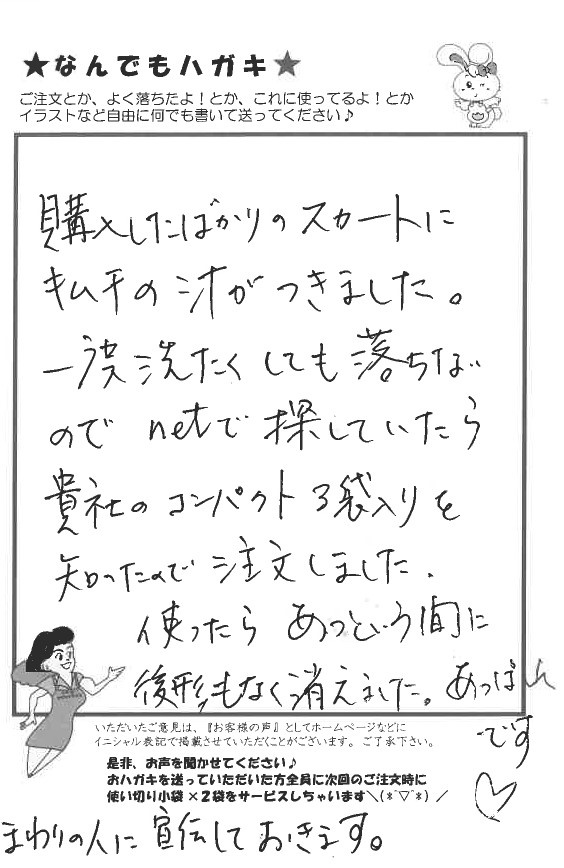 ★なんでもハガキ★
ご注文とか、よく落ちたよ！とか、これに使ってるよ！とか
イラストなど自由に何でも書いて送ってください♪
購入したばかりのスカートに
キムチの汁がつきました。
一度洗たくしても落ちない
ので netで探していたら
貴社のコンパクト3袋入りを
知ったので注文しました.
使ったら あっという間に
後形もなく消えました。あっぱれ
です♡
いただいたご意見は、『お客様の声』としてホームページなどに
イニシャル表記で掲載させていただくことがございます。ご了承下さい。
是非、お声を聞かせてください♪
おハガキを送っていただいた方全員に次回のご注文時に
使い切り小袋×2袋をサービスしちゃいます＼(*ˇ▽ˇ*)／
まわりの人に宣伝しておきます。